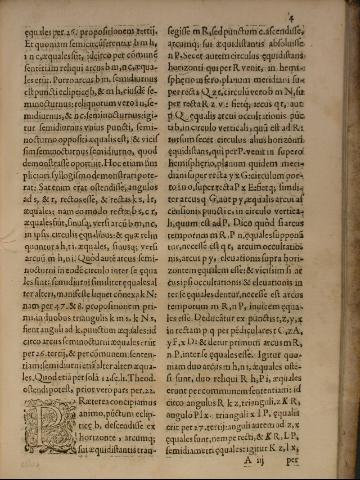 4
equales per 26. propositionem tertij.
Et quoniam semicircuferentiæ b m h,
i n c, æquales sunt, idcirco per comunē
sententiam reliqui arcus b m, n c, æqua-
les erūt. Porro arcus b m, semidiurnus
est puncti eclipticę b, & m h, eiusdē se-
minocturnus: reliquorum vero i n, se-
midiurnus, & n c, seminocturnus: igi-
tur semidiurnus vnius puncti, semi-
nocturno oppositi æqualis est, & vicis
sim seminocturnus semidiurno, quod
demonstrasse oportuit. Hoc etiam sim
plici cum syllogismo demonstrari pote-
rat: Sat enim erat ostendisse, angulos
ad s, & r, rectos esse, & rectas k s, k r,
æquales: nam eo modo rectæ b s, c r,
æquales sūt,
in ipsis circulis equalibus: & quæ relin
quuntur s h, r i, æquales,
arcui m h, n i. Quod autē arcus semi-
nocturni in eodē circulo inter se equa
les sunt: & semidiurni similiter equales al
ter alteri, manifeste liquet connexa k N:
nam per 47. & 8. propositionem pri-
mi in duobus triangulis k m s, k N s,
fient anguli ad k, punctum æquales: id
circo arcus seminocturni æquales: erūt
per 26. tertij, & per comunem senten-
tiam semidiurni etiā alter alteri æqua-
les. Quod etiā per solā
ostendi potest, prior vero pars per 22.
PRæterea concipiamus
animo, punctum eclip-
ticę b, descendisse ex
horizonte, arcumq;
sui æquidistantis tran-
segisse m R, sed punctum c, ascendisse,
arcumq; sui æquidistantis absoluisse
n P. Secet autem circulus equidistans
horizonti qui per R venit, in hemi-
sphęrio infero, planum meridiani su-
per recta Q z t, circulū vero b m N, su-
per recta R z v: fietq; arcus q t, aut
p Q, equalis arcui occultationis pūc
ti b, in circulo verticali, qui est ad R:
rursum secet circulus alius horizonti
equidistans, qui per P, venit in supero
hemisphęrio, planum quidem meri-
diani super recta y x G: circulum por-
ro i n o, super recta P x E fietq; simili-
ter arcus q G, aut p y, æqualis arcui as
censionis puncti c, in circulo vertica-
li, qui est ad P. Dico quòd si arcus
temporum m R, P n, equales suppon ā
tur, necesse est q t, arcum occultatio-
nis, arcui p y, eleuationis supra hori-
zontem equalem esse: & vicissim si ar
cus ipsi occultationis & eleuationis in
ter se equales dentur, necesse est arcus
temporum m R, n P, inuicem equa-
les esse. Deducātur ex punctis t, z, y, x
in rectam p q perpēdiculares t C, z A,
y F, x D: & detur primum arcus m R,
n P, inter se equales esse. Igitur quo-
niam duo arcus m h, n i, æquales ostē-
si sunt, duo reliqui R h, P i, æquales
erunt per communem sententiam: id
circo angulus R k z, trianguli, z k R,
angulo P l x, trianguli x l P, equalis
erit per 27. tertij: anguli autem ad z, x
equales sunt, nempe recti, & k R, l P,
semidiametri equales: igitur K z, l x,
A iij per